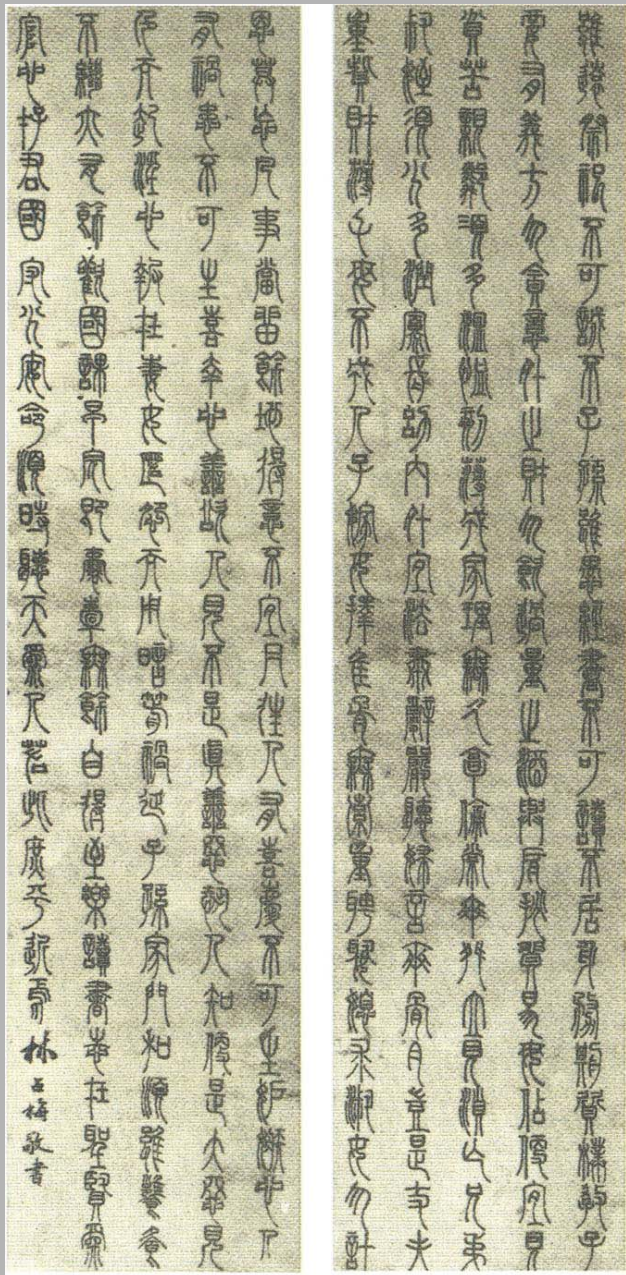 雖遠祭祀不可誠不子孫雖愚經書不可讀不居身務期質樸教子
要有義方勿貪意外之財勿飲過量之酒與肩挑貿易毋佔便宜見
貧苦親鄰須多溫恤刻薄成家理無久享倫常乖舛立見消亡兄弟
叔姪須分多潤寡長幼內外宜法肅辭嚴聽婦言乖骨肉豈是丈夫
重貲財薄父母不成人子嫁女擇佳婿無索重聘娶媳求淑女勿計
恩莫忘凡事當留餘地得意不宜再往人有喜慶不可生妒嫉心人
有禍患不可生喜幸心善欲人見不是真善惡恐人知便是大惡見
色而起淫心報在妻女匿怨而用暗箭禍延子孫家門和順雖饔飧
不繼亦有餘歡國課早完即囊橐無餘自得至樂讀書志在聖賢為
官心存君國守分安命順時聽天為人若此庶乎近焉林占梅敬書